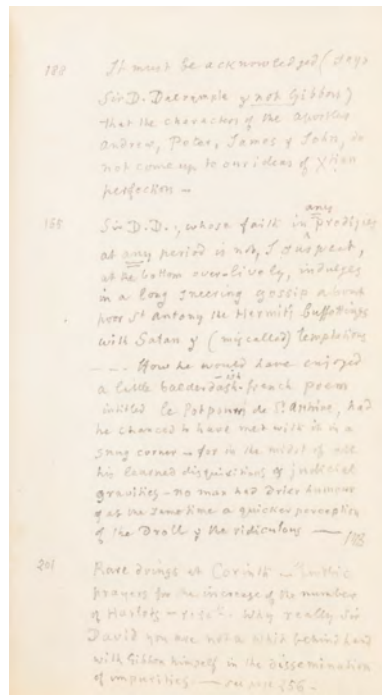 188 It must be acknowledged (says
Sir D. Dalrymple & not Gibbon)
that the characters of the Apostles
Andrew, Peter, James & John, do
not come up to our ideas of Xtian
perfection —
165 Sir D.D., whose faith in any prodigies
at any period is not, I suspect,
at the bottom over-lively, indulges
in a long sneering gossip about
poor St Antony the Hermit's Buffetings
with Satan & (miscalled) temptations
---- How he would have enjoyed
a little balderdash-french poem
intitled le Potpourri de St Antoine, had
he chanced to have met with it in a
snug corner — for in the midst of all
his learned disquisitions & judicial
gravities — no man had drier humour
& at the same time a quicker perception
of the Droll & the ridiculous — 188
201 Rare doings at Corinth — "public
prayers for the increase of the number
of Harlots — Why really Sir
David you are not a whit behind hand
with Gibbon himself in the dissemination
of impurities — see note 256 —